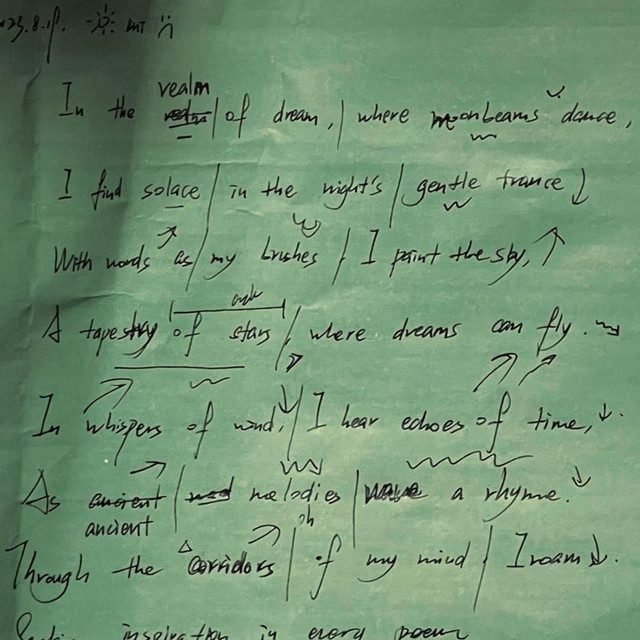 In the realm of dream, where moonbeams dance,
I find solace in the night's gentle trance
With words as my brushes I paint the sky,
A tapestry of stars, where dreams can fly.
In whispers of wind, I hear echoes of time,
As ancient melodies weave a rhyme.
Through the corridors of my mind I roam.
inspiration in every poem